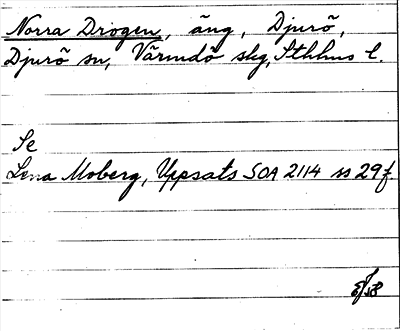 Norra Drogen, äng, Djurö,
Djurö sn, Värmdö skg, Sthlms l.
Se
Lena Moberg, Uppsats SOA 2114 ss 29f.